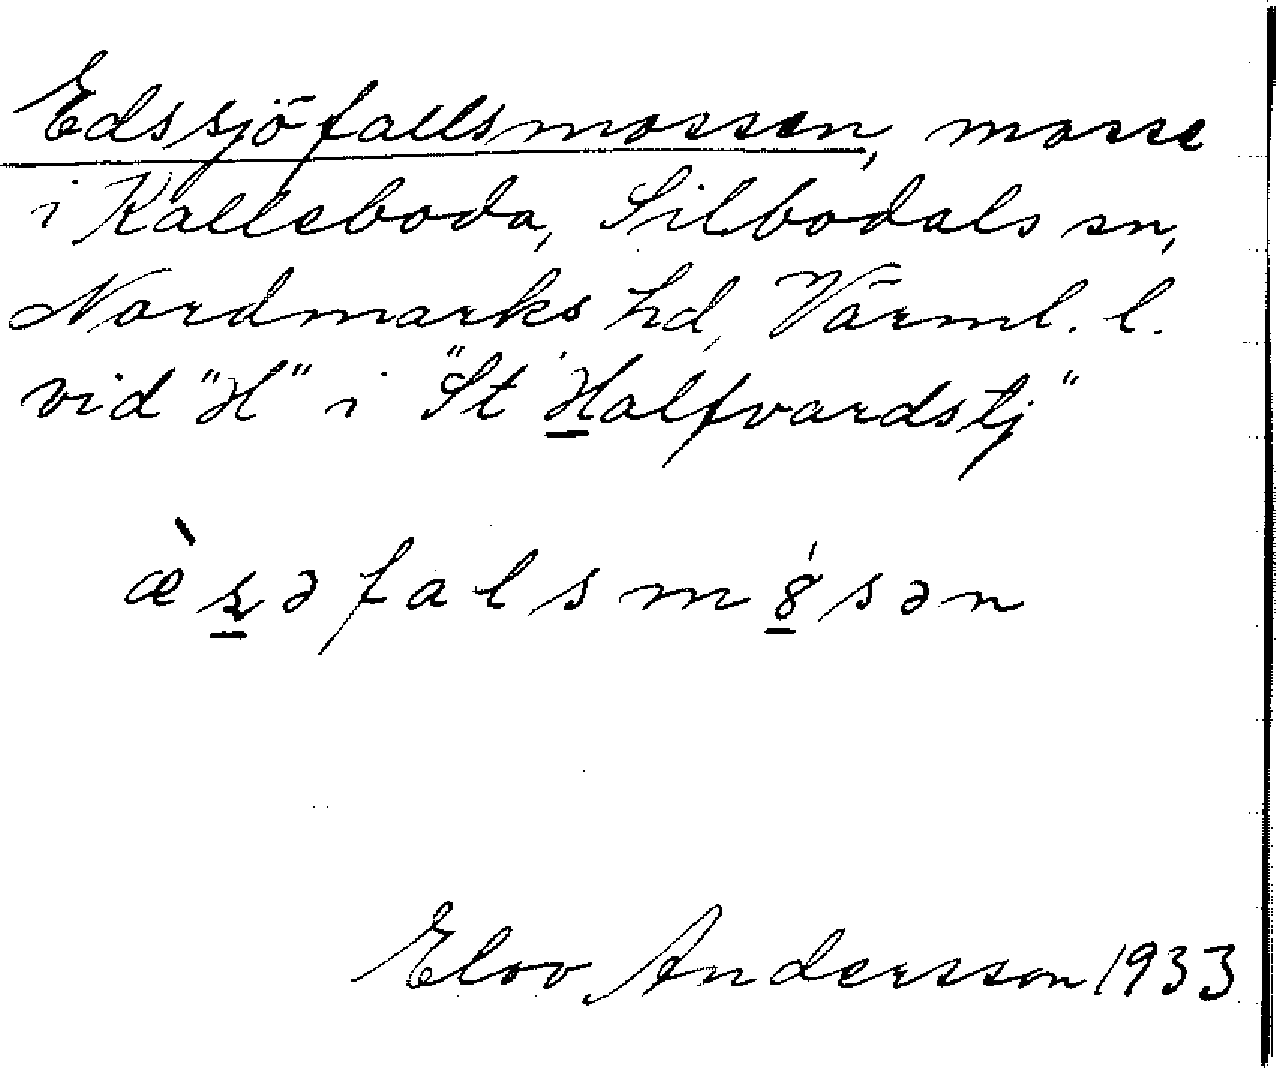 Edssjöfallsmossen, mosse
i Källeboda, Silbodals sn,
Nordmarks hd, Värml. l.
vid "H" i "St Halfvardstj"
æ̀ʂəfalsm8́sən
Elov Andersson 1933